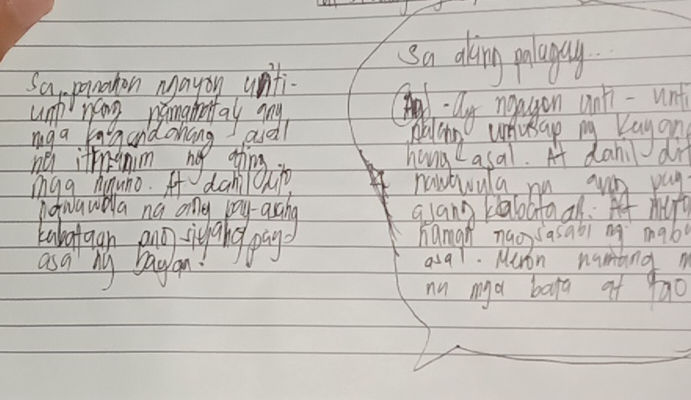 Sa panahon ngayon unti-
unti nang namamatay ang
mga kagandahang asal
na itinanim ng ating
mga ninuno. At dahil dito
nawawala na ang pag-asang
kabataan ang siyang pag-
asa ng bayan.
Sa aking palagay...
-Ay ngayon unti-unti
ng
hang asal. At dahil dit
nawawula na ang pag-
asang kabataan. At
naman nagsasabi ng mabu
asal. Meron namang m
na mga bata at tao